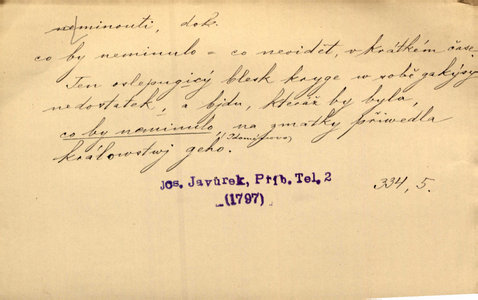 neminouti, dok.
co by neminulo = co nevidět, v krátkém čase.
Ten oslepugicý blesk kryge w sobě gakýsy
nedostatek, a bjdu, kteráž by byla,
co by neminulo, na zmatky přiwedla
královstwj geho.
Jos. Javůrek, Příb. Tel. 2
(1797)
334, 5.